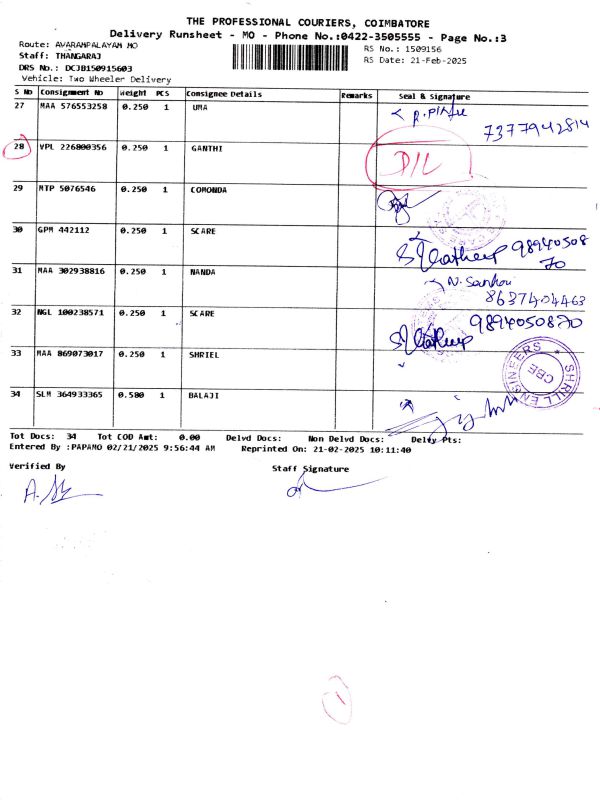 THE PROFESSIONAL COURIERS, COIMBATORE
Delivery Runsheet - MO - Phone No.:0422-3505555 - Page No.:3
Route: AVARAMPALAYAM MO RS No.: 1509156
Staff: THANGARAJ RS Date: 21-Feb-2025
DRS No.: DCJB150915603
Vehicle: Two Wheeler Delivery
S No Consignment No Weight PCS Consignee Details Remarks Seal & Signature
27 MAA 576553258 0.250 1 UMA
7377942814
28 VPL 226800356 0.250 1 GANTHI D/L
29 MTP 5076546 0.250 1 COMONDA
30 GPM 442112 0.250 1 SCARE
98940508
70
31 MAA 302938816 0.250 1 NANDA
8637404463
32 NGL 100238571 0.250 1 SCARE
9894050870
33 MAA 869073017 0.250 1 SHRIEL
SHRILL ENGINEERS
CBE
34 SLM 364933365 0.580 1 BALAJI
Tot Docs: 34 Tot COD Amt: 0.00 Delvd Docs: Non Delvd Docs: Delty Pts:
Entered By :PAPAMO 02/21/2025 9:56:44 AM Reprinted On: 21-02-2025 10:11:40
Verified By Staff Signature
1